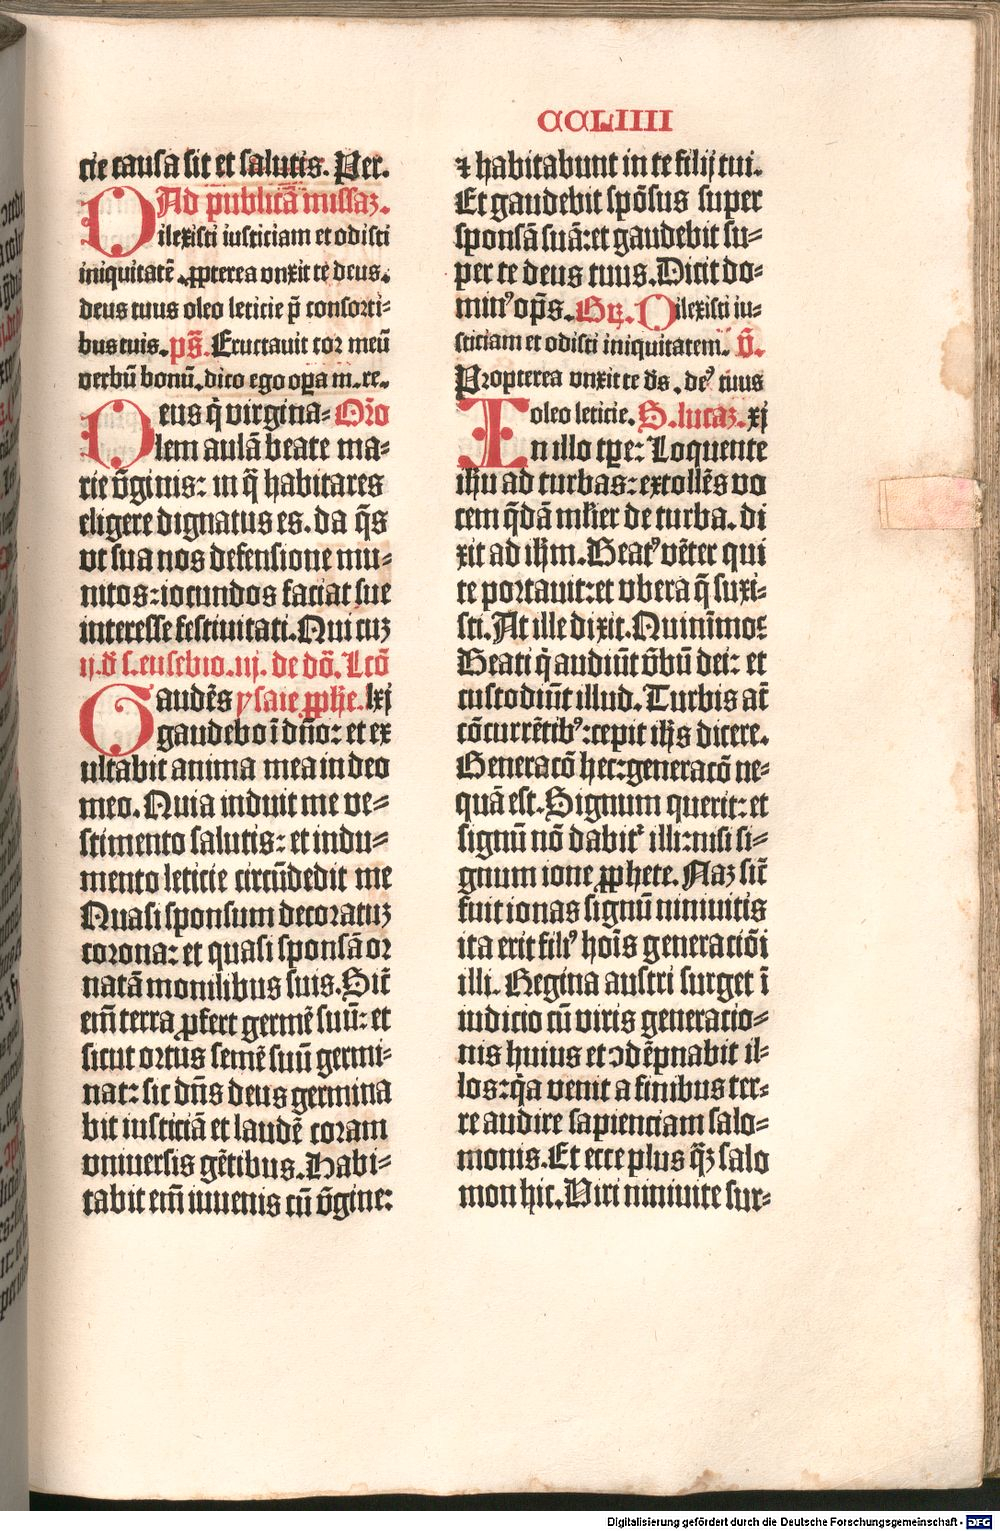 CCLIIII
cie causa sit et salutis. Per.
Ad p̄ublicā missaꝫ.
Dilexisti iusticiam et odisti
iniquitatē .ꝓpterea vnxit te deus.
deus tuus oleo leticie p̄ consorti⸗
bus tuis. ps̄. Eructauit cor meū
verbū bonū. dico ego opa m. re.
Deus q̄ virgina⸗ Oro̅
lem aulā beate ma⸗
rie v̄ginis: in q̄ habitares
eligere dignatus es. da q̄s
vt sua nos defensione mu⸗
nitos: iocundos faciat sue
interesse festiuitati. Qui cuꝫ
ij. d̄ s. eusebio. iij. de dō. Lcō
Gaudēs ysaie ꝓphe. lxj
gaudebo ī dn̄o: et ex
ultabit anima mea in deo
meo. Quia induit me ve⸗
stimento salutis: et indu⸗
mento leticie circūdedit me
Quasi sponsum decoratuꝫ
corona: et quasi sponsā or
natā monilibus suis. Sic̄
em̄ terra ꝓfert germē suū: et
sicut ortus semē suū germi⸗
nat: sic dn̄s deus germina
bit iusticiā et laudē coram
vniuersis gētibus. Habi⸗
tabit em̄ iuuenis cū v̄gine:
⁊ habitabunt in te filij tui.
Et gaudebit spōsus super
sponsā suā: et gaudebit su⸗
per te deus tuus. Dicit do⸗
minꝰ op̄s. Gr̄. Dilexisti iu⸗
sticiam et odisti iniquitatem. v̄.
Propterea vnxit te ds̄ . deꝰ tuus
oleo leticie. S. lucaꝫ. xj
In illo tp̄e: Loquente
ih̄u ad turbas: extollēs vo
cem q̄dā ml̄ier de turba. di
xit ad ih̄m. Beatꝰ vēter qui
te portauit: et vbera q̄ suxi⸗
sti. At ille dixit. Quinīmo:
Beati q̄ audiūt v̄bū dei: et
custodiūt illud. Turbis at̄
cōcurrētibꝰ: cepit ih̄s dicere.
Generacō hec: generacō ne⸗
quā est. Signum querit: et
signū nō dabit᷑ illi: nisi si⸗
gnum ione ꝓphete. Naꝫ sic̄
fuit ionas signū niniuitis
ita erit filiꝰ hoīs generaciōi
illi. Regina austri surget ī
iudicio cū viris generacio⸗
nis huius et ↄdēpnabit il⸗
los: q̄a venit a finibus ter⸗
re audire sapienciam salo⸗
monis. Et ecce plus q̄ꝫ salo
mon hic. Viri niniuite sur⸗
Digitalisierung gefördert durch die Deutsche Forschungsgemeinschaft - DFG